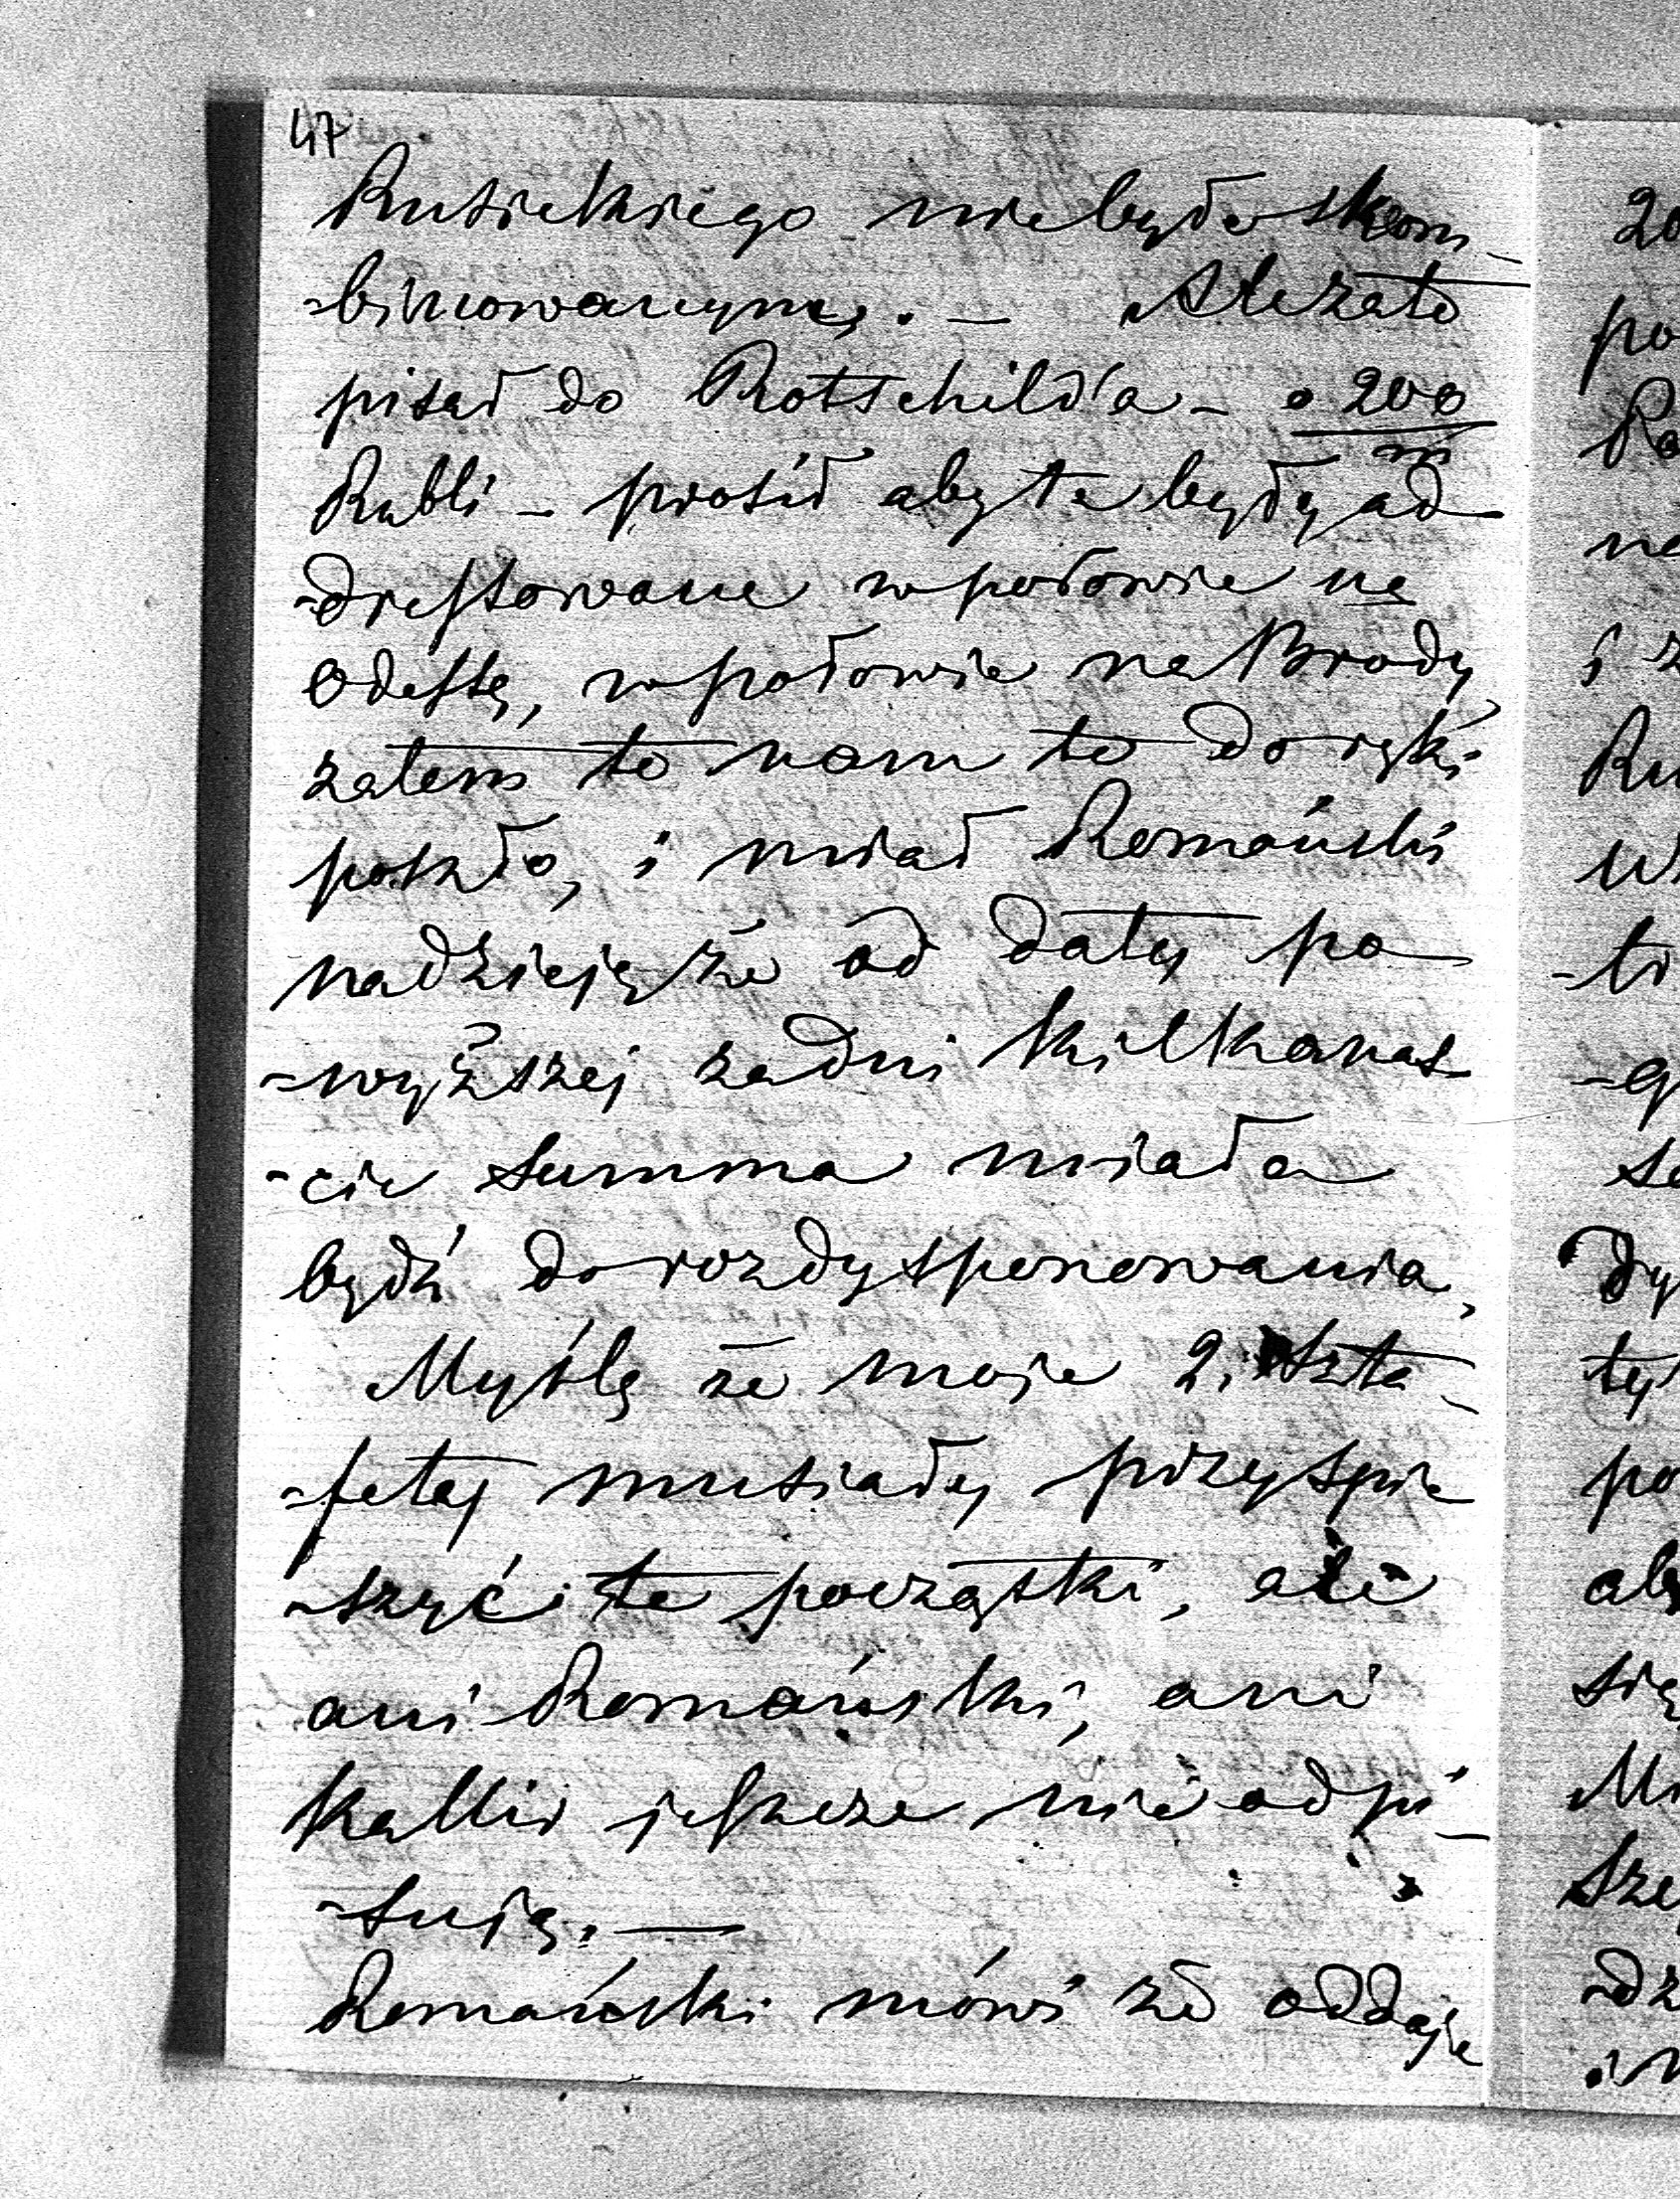 47
Rusieckiego niebyło skom-
-binowanym. – Ale zato
pisał do Rotschild'a – o 200/m
Rubli – prosił aby te były ad
-dressowane w połowie na
Odessę, w połowie na Brody
zatem to nam to do ręki
poszło, i miał Romański
nadzieję że od daty po
-wyższej za dni kilkanas
-cie summa miała
bydź do rozdysponowania,
Myślę że moje 2. Szta-
-fety musiały przyspie
-szyć te początki, ale
ani Romański, ani
Kallir jeszcze nie odpi-
-sują. —
Romański mówi że oddaje